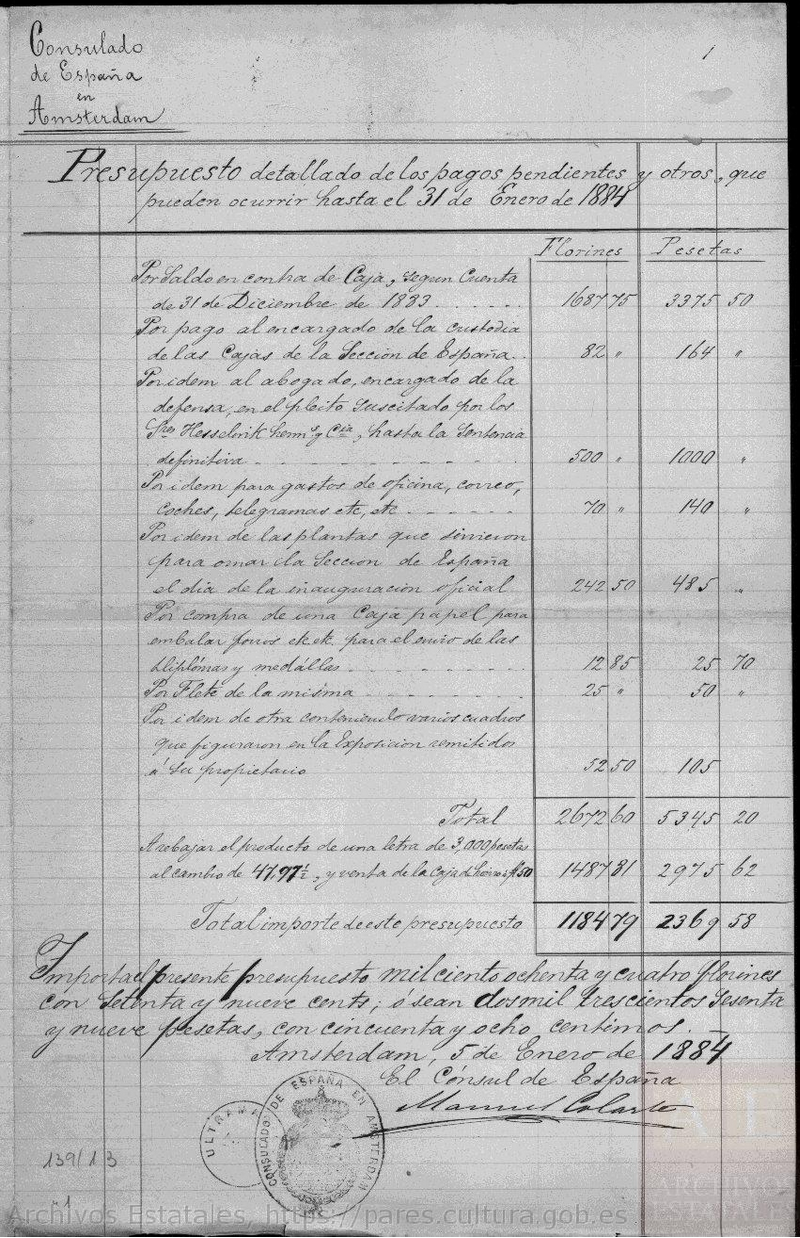 Consulado
de España
en
Amsterdam
1
Presupuesto detallado de los pagos pendientes y otros, que
pueden ocurrir hasta el 31 de Enero de 1884
Florines Pesetas
Por Saldo en contra de Caja, segun Cuenta
de 31 de Diciembre de 1883 1687 75 3375 50
Por pago al encargado de la custodia
de las Cajas de la Seccion de España 82 " 164 "
Por idem al abogado, encargado de la
defensa, en el pleito suscitado por los
Sres Hesselink herms y Cia, hasta la Sentencia
definitiva 500 " 1000 "
Por idem para gastos de oficina, correo,
coches, telegramas etc, etc 70 " 140 "
Por idem de las plantas que sirvieron
para ornar la Seccion de España
el dia de la inauguracion oficial 242 50 485 "
Por compra de una Caja papel para
embalar forros etc etc para el envio de las
diplómas y medállas 12 85 25 70
Por Flete de la misma 25 " 50 "
Por idem de otra conteniendo varios cuadros
que figuraron en la Exposicion remitidos
á su propietario 52 50 105
Total 2672 60 5345 20
A rebajar el producto de una letra de 3,000 pesetas
al cambio de 47,97½, y venta de la caja de hierro fl 50 1487 81 2975 62
Total importe de este presupuesto 1184 79 2369 58
Importa el presente presupuesto mil ciento ochenta y cuatro florines
con setenta y nueve cents; ó sean dos mil trescientos sesenta
y nueve pesetas, con cincuenta y ocho centimos.
Amsterdam, 5 de Enero de 1884
El Cónsul de España
Manuel Colarte
ULTRAMAR
CONSULADO DE ESPAÑA EN AMSTERDAM
139/1 3
1
Archivos Estatales, https://pares.cultura.gob.es
ARCHIVOS
ESTATALES